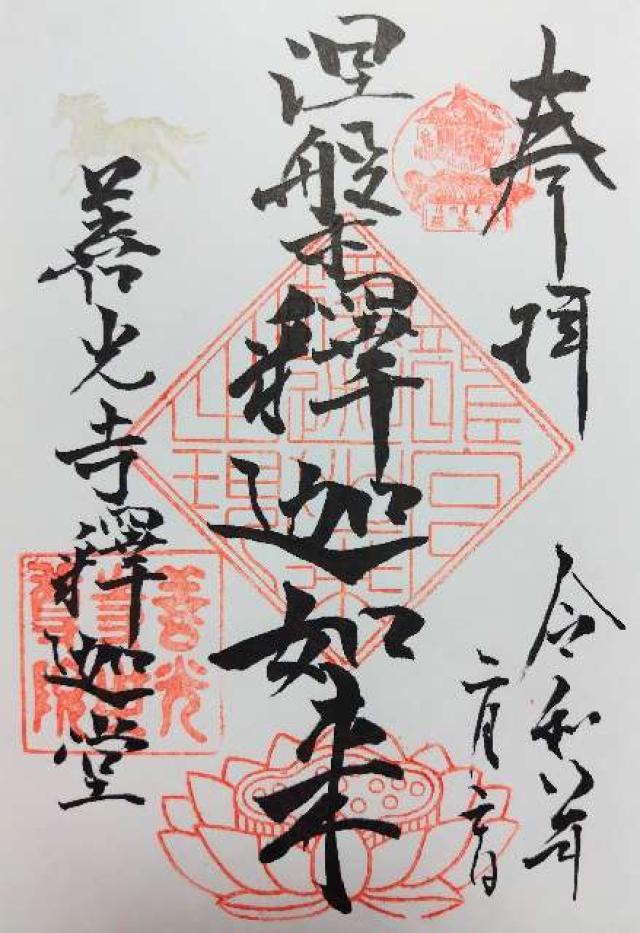 奉拝
令和八年
二月二日
涅槃釋迦如来
善光寺釋迦堂